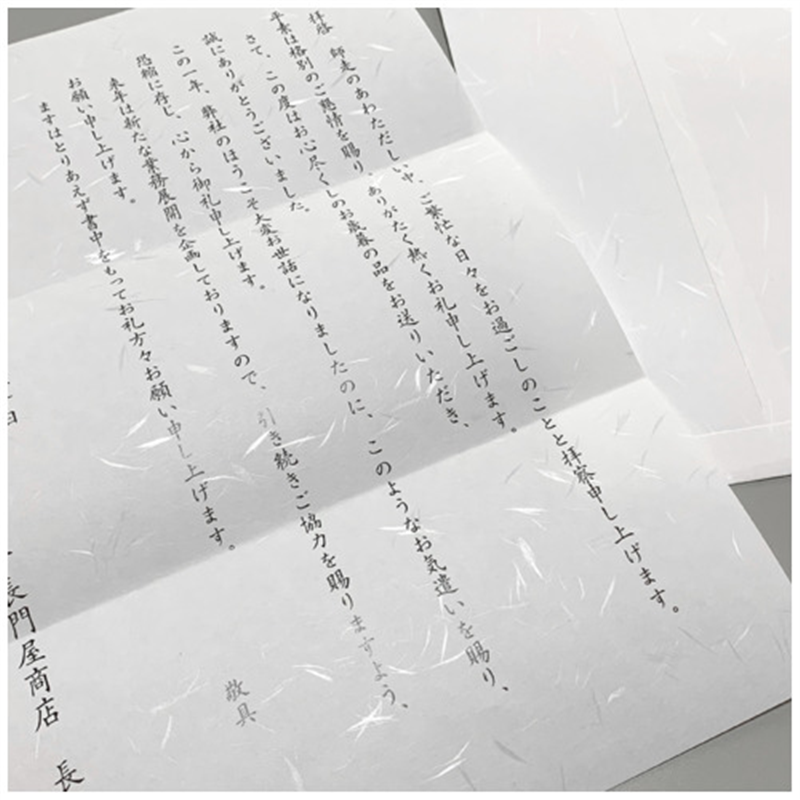 拝啓　師走のあわただしい中、ご繁忙な日々をお過ごしのことと拝察申し上げます。
平素は格別のご懇情を賜り、ありがたく熱くお礼申し上げます。
さて、この度はお心尽くしのお歳暮の品をお送りいただき、
誠にありがとうございました。
この一年、弊社のほうこそ大変お世話になりましたのに、このようなお気遣いを賜り、
恐縮に存じ、心から御礼申し上げます。
来年は新たな業務展開を企画しておりますので、引き続きご協力を賜りますよう、
お願い申し上げます。
まずはとりあえず書中をもってお礼方々お願い申し上げます。
敬具
長門屋商店　長